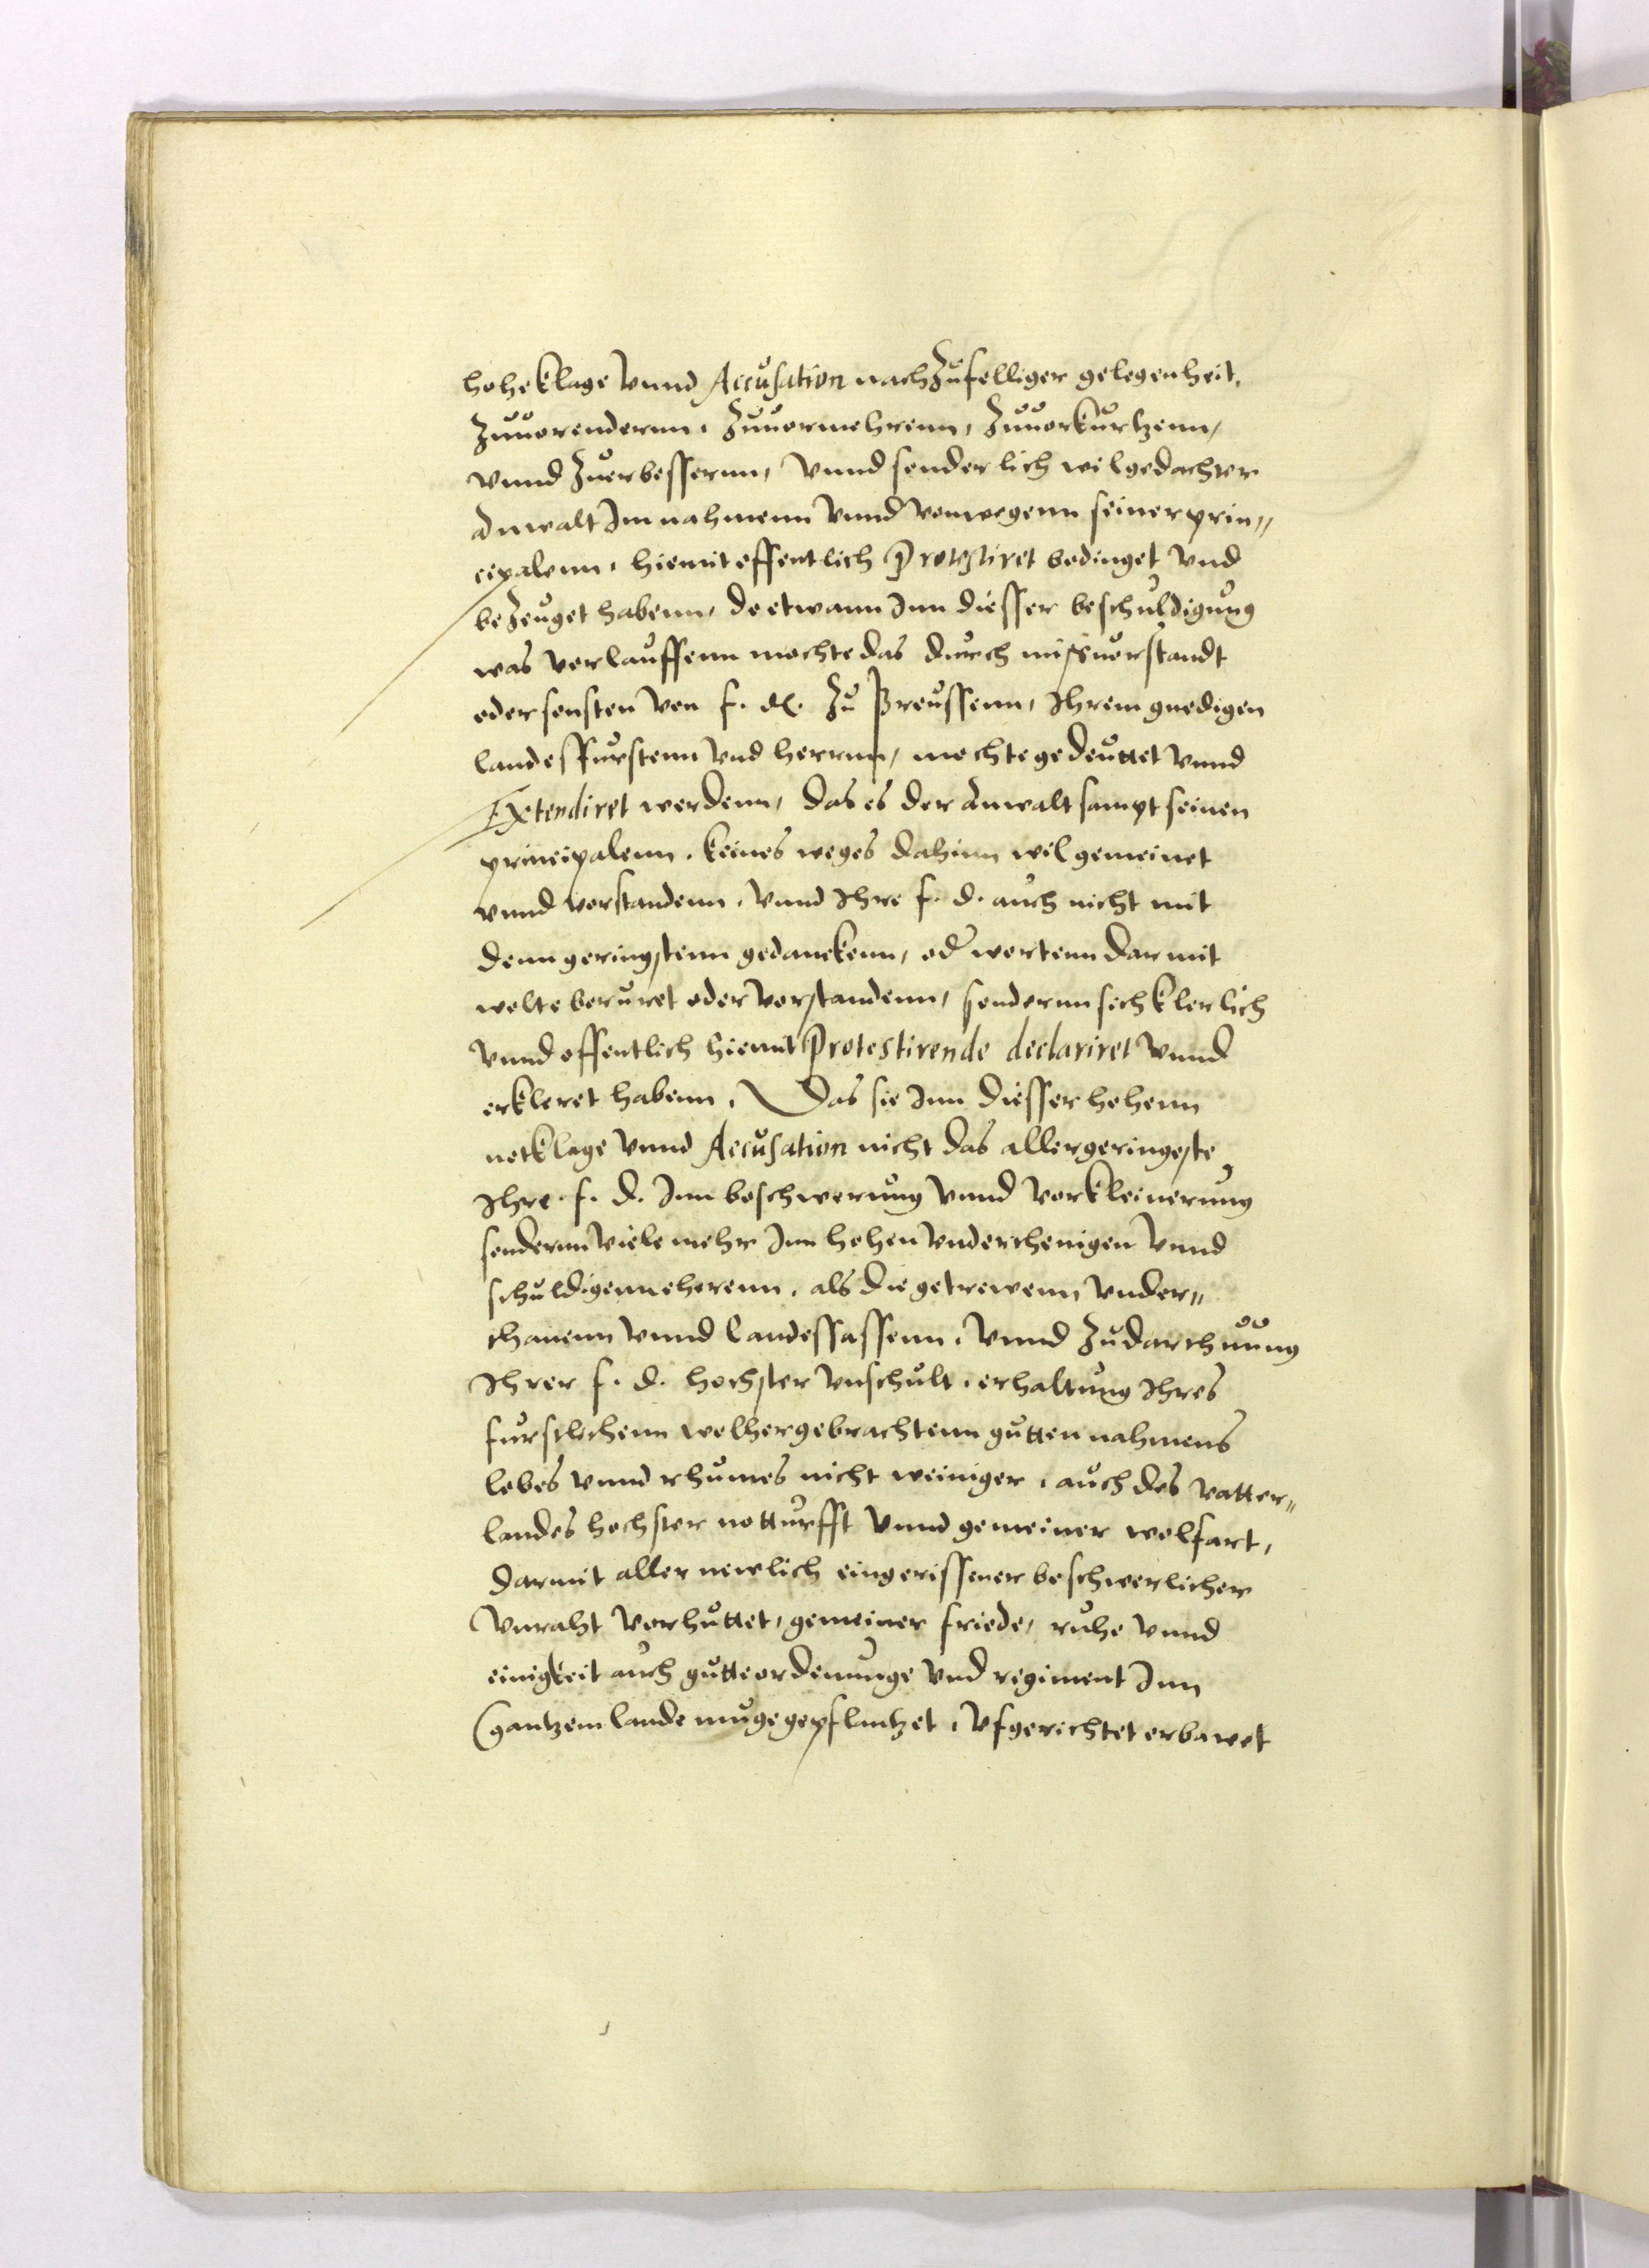 hoheklage vnnd Accusation nach zufelliger gelegenheit,
Zuuorenderun, Zuuormehrenn, Zuuorkurtzenn,
vnnd Zuerbessernn, vnnd sonderlich wil gedachter
Anwalt Im nahmenn vnnd vonwegenn seiner prin„
cipalenn, hiemit offentlich Protestiret bedinget vnd
bezeuget habenn, do etwann Inn diesser beschuldigung
was vorlauffenn mochte das durch misuorstandt
oder sonsten von f. d. Zu Preussenn, Ihrem gnedigen
landesfurstenn vnd herrnn, mochte gedeuttet vnnd
Extendiret werdenn, das es der Anwalt sampt seinen
principalenn, keines weges dahinn wil gemeinet
vnnd vorstandenn, vnnd Ihre f. d. auch nicht mit
denn geringstenn gedanckenn, oder wortenn darmit
wolte beruret oder vorstandenn, sondernn sich klerlich
vnnd offentlich hiemit Protestirende declariret vnnd
erkleret habenn, Das sie Inn diesser hohenn
notklage vnnd Accusation nicht das allergeringeste
Ihre f. d. Inn beschwerung vnnd vorkleinerung
sondernn viele mehr Inn hohen vnderthenigen vnnd
schuldigenn eherenn, als die getrewenn vnder„
thanenn vnnd landessassenn, vnnd zu darthuung
Ihrer f. d. hochster vnschult, erhaltung Ihres
furstlichenn wolhergebrachtenn gutten nahmens
lobes vnnd rhumes nicht weiniger, auch des vatter„
landes hochster notturfft vnnd gemeiner wolfart,
darmit aller newlich eingerissener beschwerlicher
Vnraht vorhuttet, gemeiner friede, ruhe vnnd
einigkeit auch gutte ordenunge vnd regiment Inn
gantzem lande muge gepflantzet, vfgerichtet erbawet